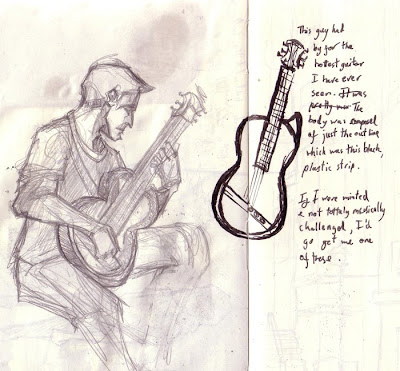 This guy had
by far the
hottest guitar
I have ever
seen. It was
pretty The
body was composed
of just the outline
which was this black,
plastic strip.
If I were minted
& not totally musically
challenged, I'd
go get me one
of these.